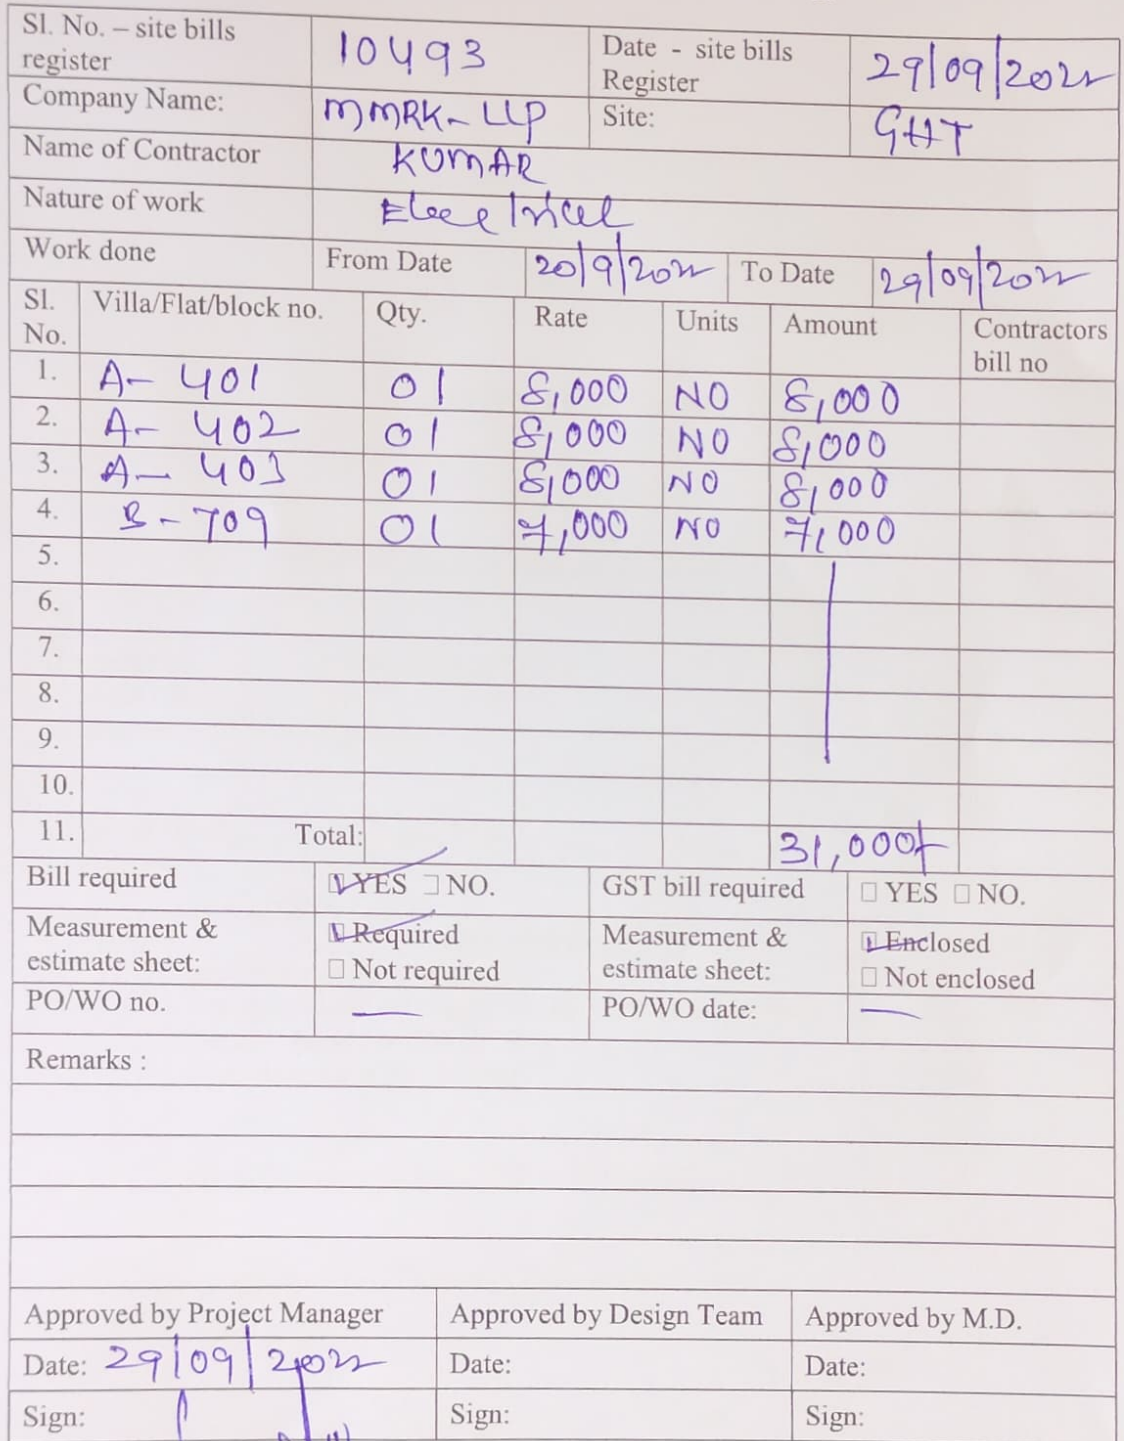 Sl. No. – site bills register 10493 Date - site bills Register 29/09/2022
Company Name: MMRK-LLP Site: GHT
Name of Contractor KUMAR
Nature of work Electrical
Work done From Date 20/9/2022 To Date 29/09/2022
Sl. No. Villa/Flat/block no. Qty. Rate Units Amount Contractors bill no
1. A- 401 01 8,000 NO 8,000
2. A- 402 01 8,000 NO 8,000
3. A- 403 01 8,000 NO 8,000
4. B-709 01 7,000 NO 7,000
5.
6.
7.
8.
9.
10.
11. Total: 31,000/-
Bill required ☑ YES ☐ NO. GST bill required ☐ YES ☐ NO.
Measurement & estimate sheet: ☑ Required ☐ Not required Measurement & estimate sheet: ☑ Enclosed ☐ Not enclosed
PO/WO no. — PO/WO date: —
Remarks :
Approved by Project Manager Approved by Design Team Approved by M.D.
Date: 29/09/2022 Date: Date:
Sign: Sign: Sign: